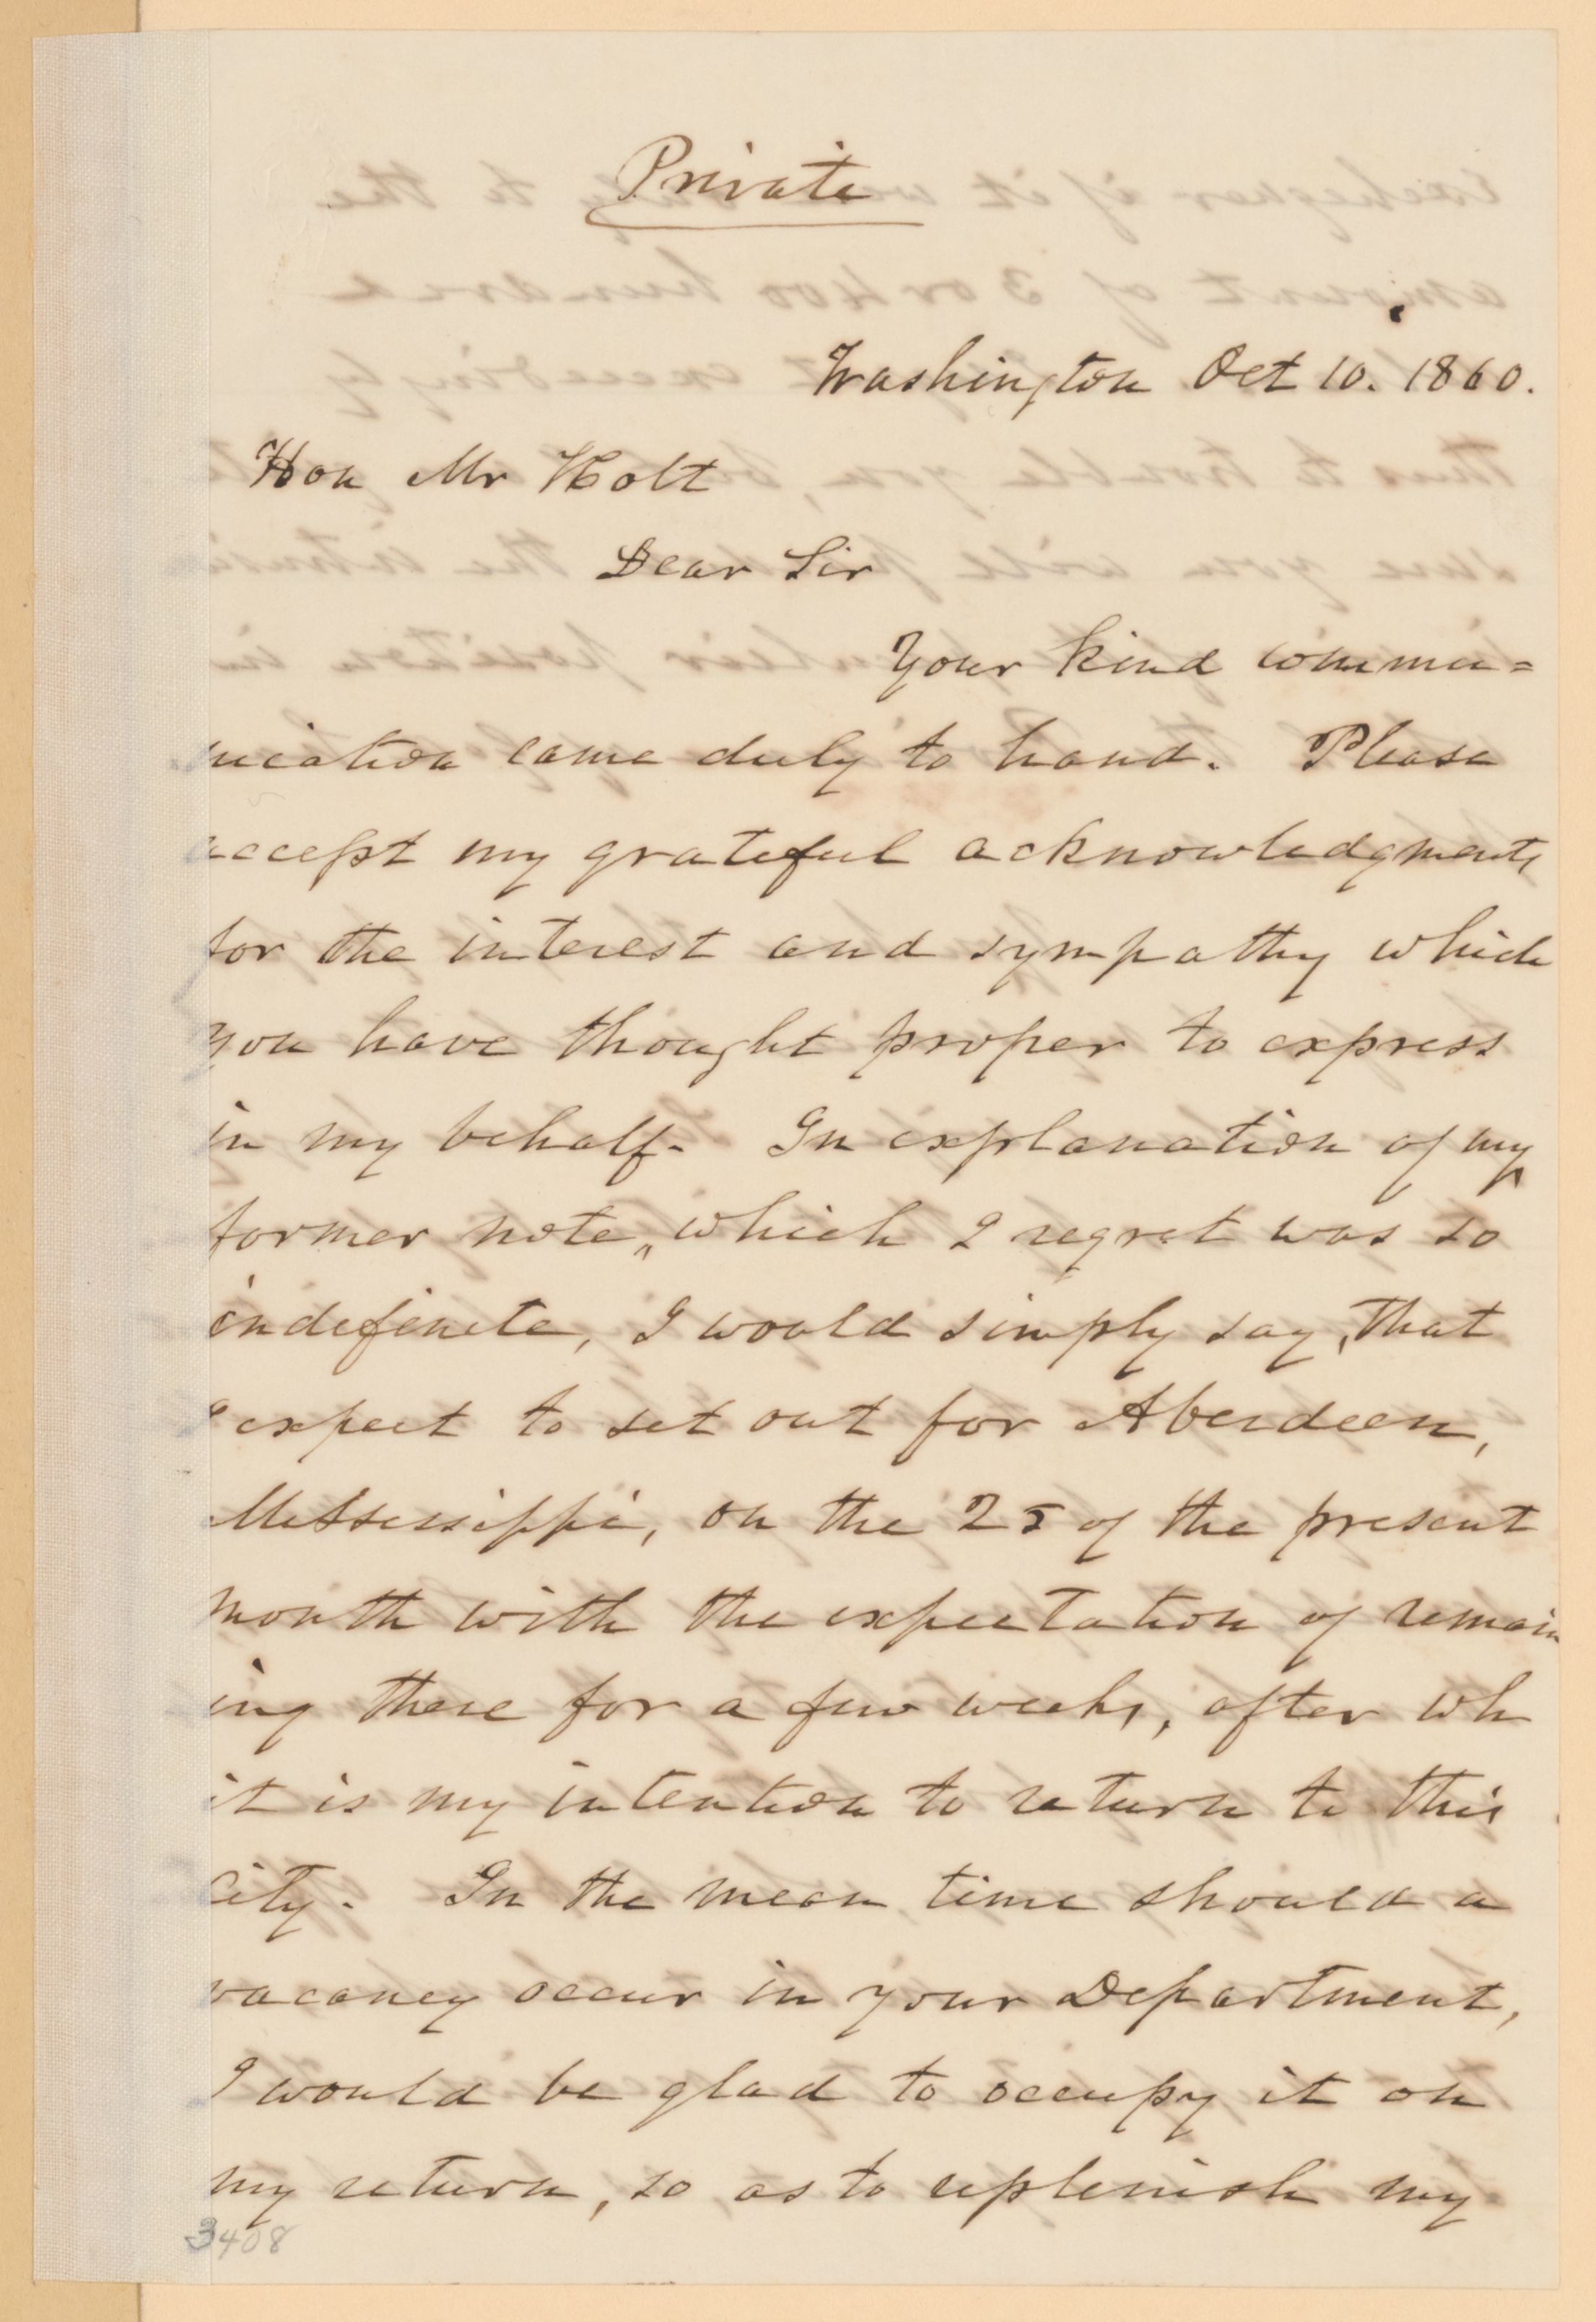 Private
Washington Oct 10. 1860.
Hon Mr Holt
Dear Sir
Your kind commu=
nication came duly to hand. Please
accept my grateful acknowledgments
for the interest and sympathy which
you have thought proper to express
in my behalf. In explanation of my
former note, which I regret was so
indefinite, I would simply say, that
I expect to set out for Aberdeen,
Mississippi, on the 25 of the present
month with the expectation of remain
ing there for a few weeks, after wh
it is my intention to return to this
City. In the mean time should a
vacancy occur in your Department,
I would be glad to occupy it on
my return, so as to replenish my
3408